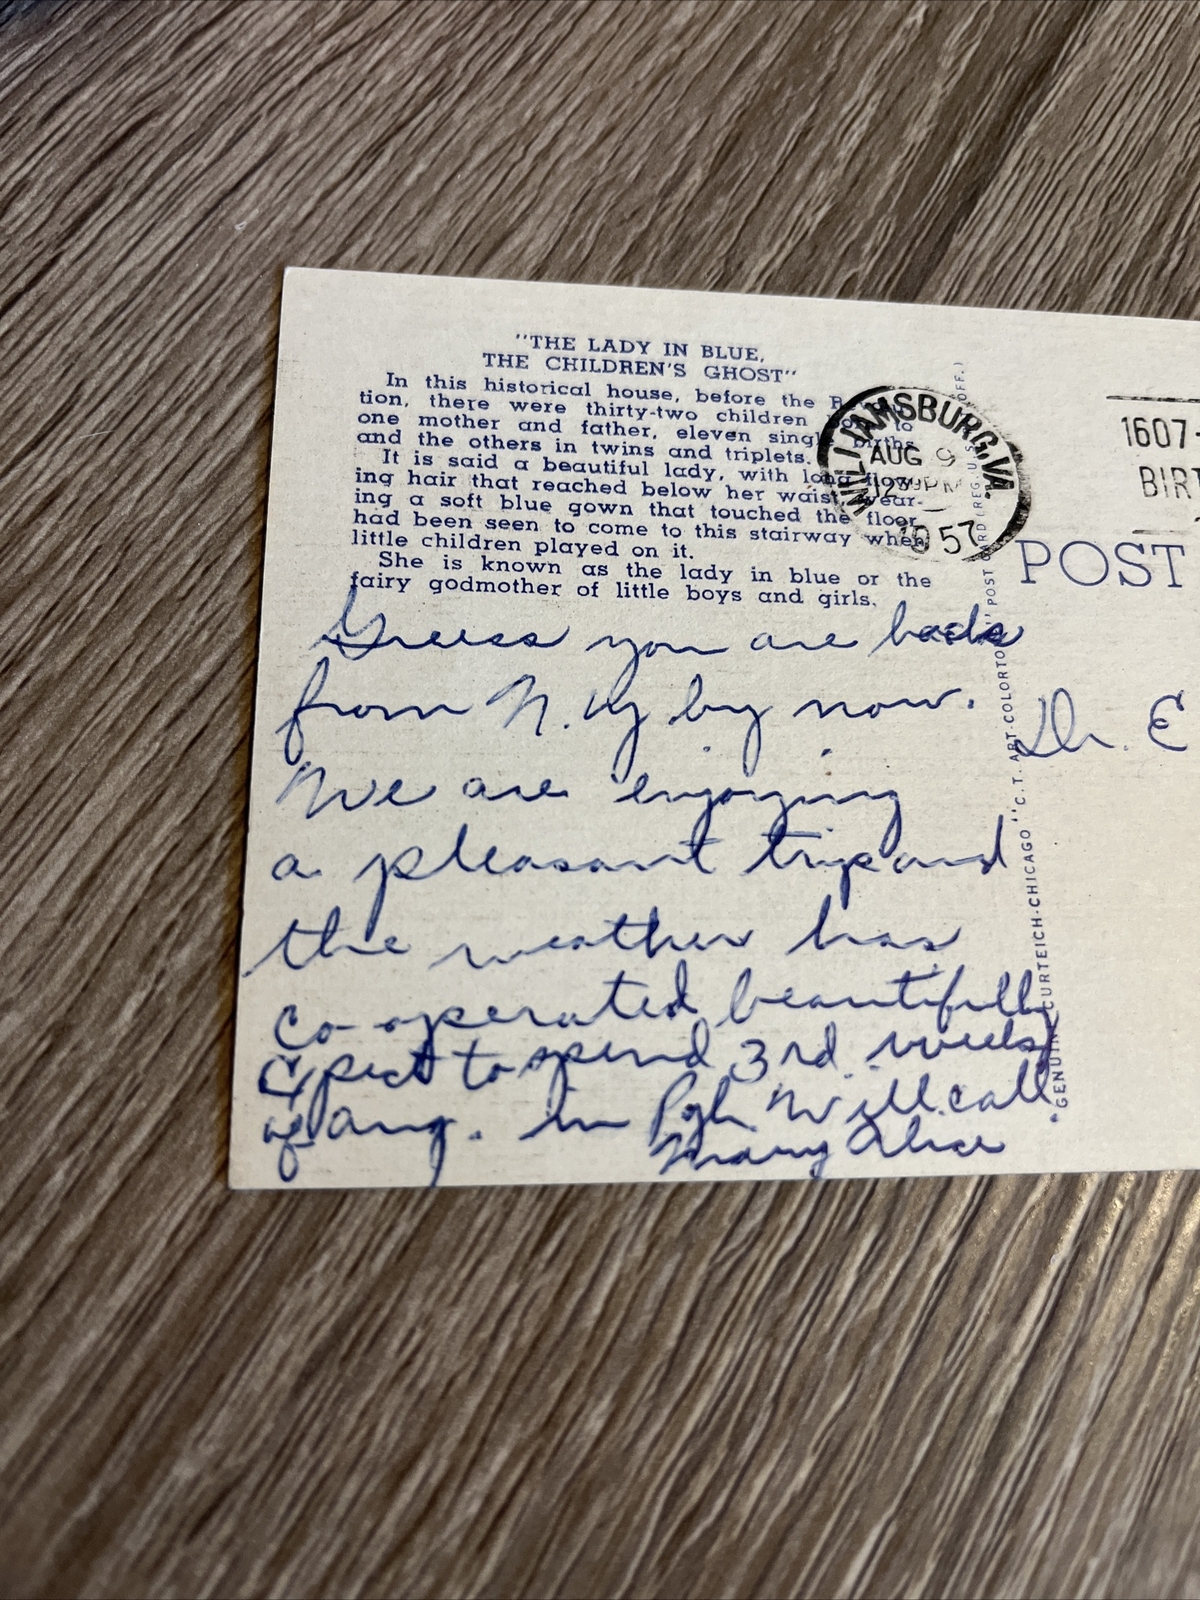 "THE LADY IN BLUE,
THE CHILDREN'S GHOST"
In this historical house, before the
tion, there were thirty-two children to
one mother and father, eleven births
and the others in twins and triplets.
It is said a beautiful lady, with long flow-
ing hair that reached below her waist, wear-
ing a soft blue gown that touched the floor
had been seen to come to this stairway when
little children played on it.
She is known as the lady in blue or the
fairy godmother of little boys and girls.
WILLIAMSBURG, VA.
AUG 9
12 PM
1957
1607-
BIRT
POST
Guess you are back
from N.Y by now.
We are enjoying
a pleasant trip and
the weather has
co-operated beautifully
Expect to spend 3rd. week
of Aug. in Pgh. Will call
Mary Alice
Dr. E
"GENUINE CURTEICH-CHICAGO "C.T. ART-COLORTONE" POST CARD (REG. U.S. OFF.)